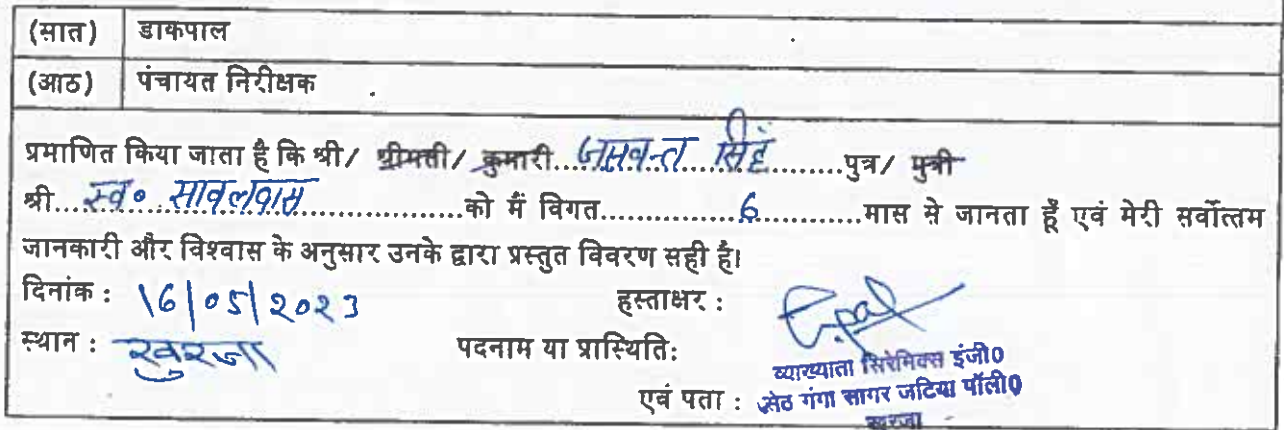 (सात) डाकपाल
(आठ) पंचायत निरीक्षक
प्रमाणित किया जाता है कि श्री/ श्रीमती/ कुमारी....जसवन्त सिंह..........पुत्र/ पुत्री
श्री....स्व० सावलदास....................को मैं विगत...............6...........मास से जानता हूँ एवं मेरी सर्वोत्तम
जानकारी और विश्वास के अनुसार उनके द्वारा प्रस्तुत विवरण सही है।
दिनांक : 16/05/2023 हस्ताक्षर :
स्थान : खुरजा पदनाम या प्रास्थिति:
व्याख्याता सिरेमिक्स इंजी0
एवं पता : सेठ गंगा सागर जटिया पॉली0
खुरजा